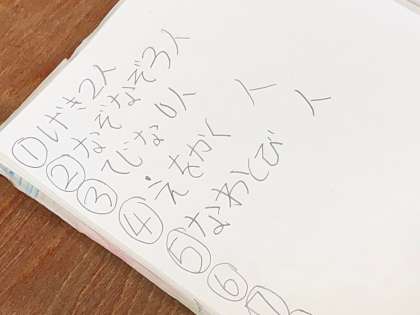 ①げき2人
②なぞなぞ3人
③てじな 0人
④えをかく 人
⑤なわとび 人
⑥
⑦